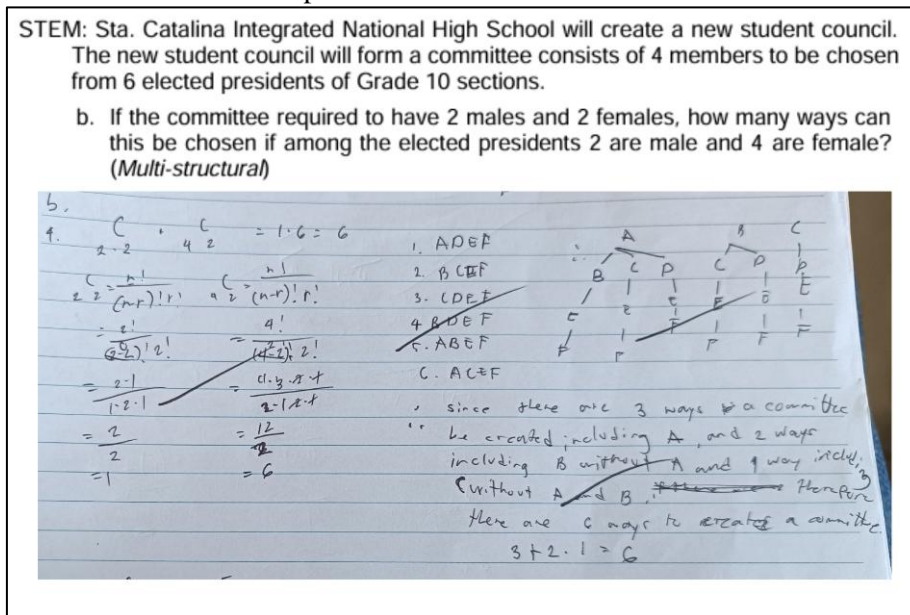 STEM: Sta. Catalina Integrated National High School will create a new student council.
The new student council will form a committee consists of 4 members to be chosen
from 6 elected presidents of Grade 10 sections.
b. If the committee required to have 2 males and 2 females, how many ways can
this be chosen if among the elected presidents 2 are male and 4 are female?
(Multi-structural)
b.
4. 2C2 · 4C2 = 1·6 = 6
2C2 = n!/(n-r)!r! 4C2 = n!/(n-r)!r!
= 2!/(2-2)!2! = 4!/(4-2)!2!
= 2·1/1·2·1 = 4·3·2·1/2·1·2·1
= 2/2 = 12/2
= 1 = 6
1. ADEF
2. BCEF
3. CDEF
4 BDEF
5. ABEF
6. ACEF
A B C
B C D C D D
E E E E E E
F F F F F F
since there are 3 ways a committee
be created including A, and 2 ways
including B without A and 1 way includ
C without A and B, therefore
there are 6 ways to a committee
3+2·1 = 6